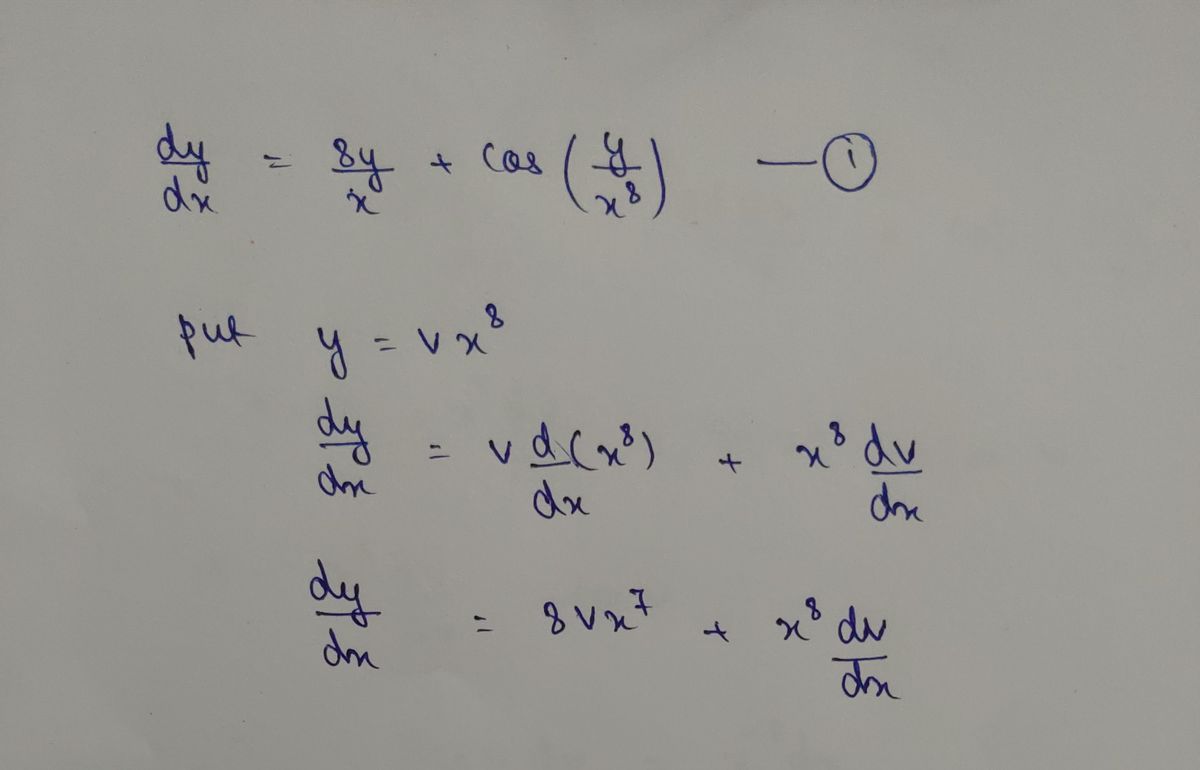 dy/dx = 8y/x + cos (y/x⁸) — ①
put y = vx⁸
dy/dx = v d/dx (x⁸) + x⁸ dv/dx
dy/dx = 8vx⁷ + x⁸ dv/dx